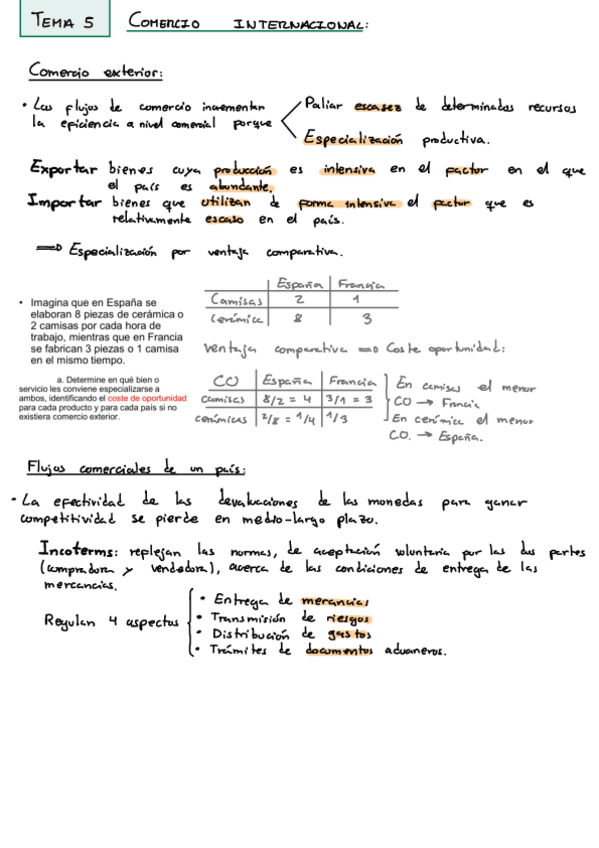 TEMA 5 COMERCIO INTERNACIONAL:
Comercio exterior:
• Los flujos de comercio incrementan
la eficiencia a nivel comercial porque
Paliar escasez de determinados recursos
Especialización productiva.
Exportar bienes cuya producción es intensiva en el factor en el que
el país es abundante.
Importar bienes que utilizan de forma intensiva el factor que es
relativamente escaso en el país.
⇒ Especialización por ventaja comparativa.
• Imagina que en España se
elaboran 8 piezas de cerámica o
2 camisas por cada hora de
trabajo, mientras que en Francia
se fabrican 3 piezas o 1 camisa
en el mismo tiempo.
a. Determine en qué bien o
servicio les conviene especializarse a
ambos, identificando el coste de oportunidad
para cada producto y para cada país si no
existiera comercio exterior.
España Francia
Camisas 2 1
Cerámica 8 3
ventaja comparativa ⇒ Coste oportunidad:
CO España Francia
camisas 8/2 = 4 3/1 = 3
cerámicas 2/8 = 1/4 1/3
En camisas el menor
CO → Francia
En cerámica el menor
CO. → España.
Flujos comerciales de un país:
• La efectividad de las devaluaciones de las monedas para ganar
competitividad se pierde en medio-largo plazo.
Incoterms: replejan las normas, de aceptación voluntaria por las dos partes
(compradora y vendedora), acerca de las condiciones de entrega de las
mercancías.
Regulan 4 aspectos
• Entrega de mercancías
• Transmisión de riesgos
• Distribución de gastos
• Trámites de documentos aduaneros.